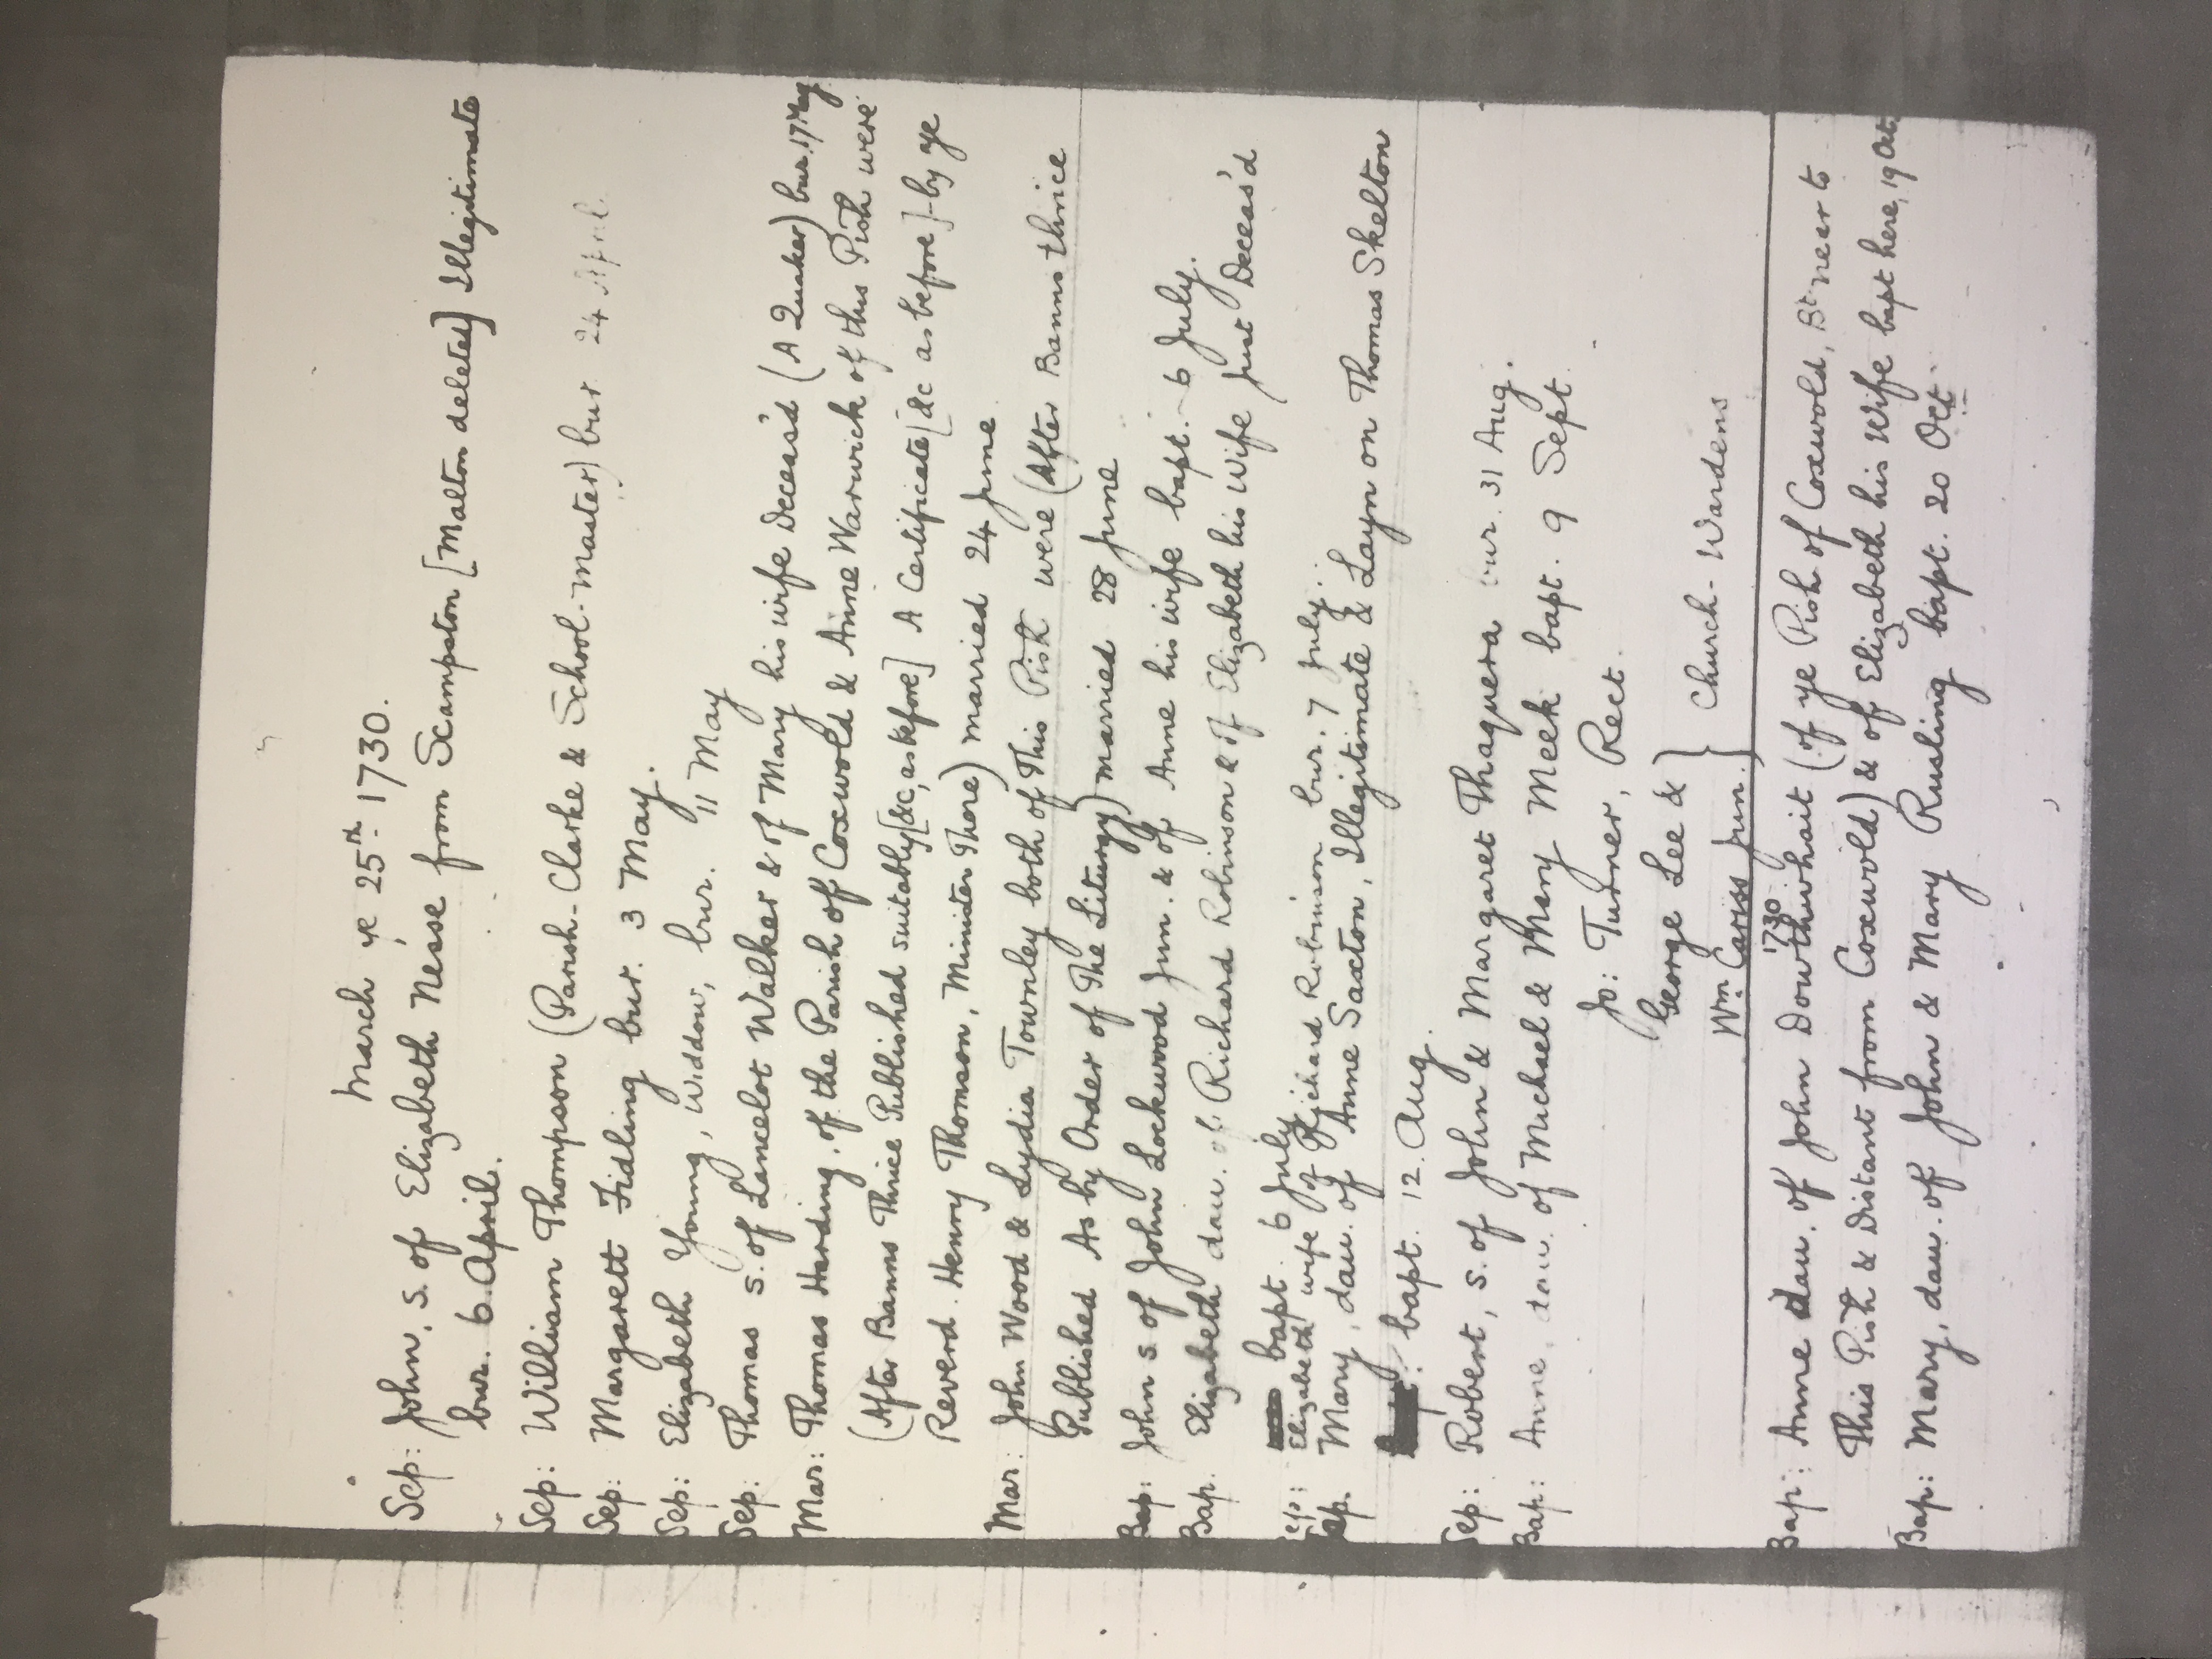 March ye 25th 1730.
Sep: John, s. of Elizabeth Nesse from Scampston [Malton deleted] Illegitimate
bur. 6 April.
Sep: William Thompson (Parish-Clarke & School-master) bur. 24 April.
Sep: Margarett Fidling bur. 3 May.
Sep: Elizabeth Young, Widdow, bur. 11 May
Sep: Thomas s. of Lancelot Walker & of Mary his wife Deceas'd (A Quaker) bur. 17 May
Mar: Thomas Harding, of the Parish of Coxwold & Anne Warwick of this Pish were
(After Banns Thrice Published suitably [&c, as before] A Certificate [&c as before] by ye
Reverd. Henry Thomson, Minister There) married 24 June
Mar: John Wood & Lydia Townley both of This Pish were (After Banns thrice
Published As by Order of The Liturgy) married 28 June
Bap: John s. of John Lockwood Jun. & of Anne his wife bapt. 6 July.
Bap. Elizabeth dau. of Richard Robinson & of Elizabeth his Wife just Deceas'd
bapt. 6 July
Sep: Elizabeth wife of Richard Robinson bur. 7 July.
Sep. Mary, dau. of Anne Saxton, Illegitimate & Layn on Thomas Skelton
bapt. 12. Aug.
Sep: Robert, s. of John & Margaret Thaquera bur. 31 Aug.
Bap: Anne, dau. of Michael & Mary Meek bapt. 9 Sept.
Jo: Turner, Rect.
George Lee & } Church-Wardens
Wm. Cariss Jun. }
1730
Bap: Anne dau. of John Dowthwhait (of ye Pish of Coxwold, Bt neer to
This Pish & Distant from Coxwold) & of Elizabeth his Wife bapt here, 19 Oct.
Bap: Mary, dau. of John & Mary Rusling bapt. 20 Oct.